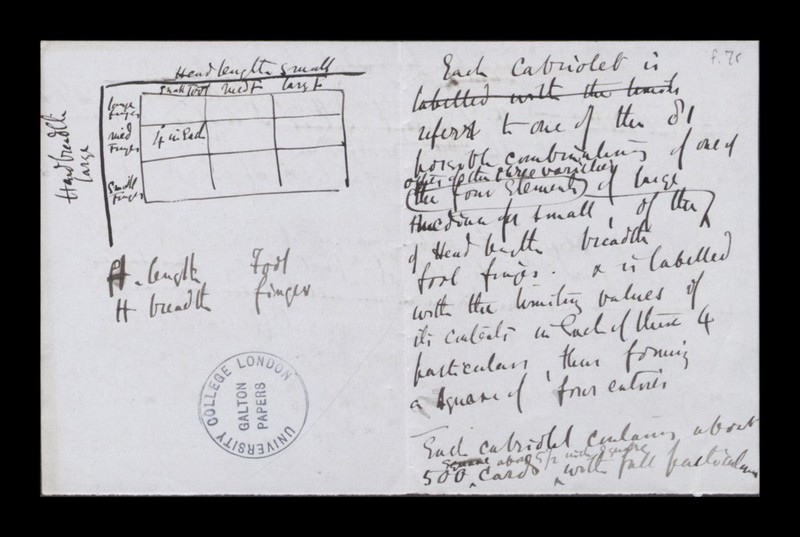 Head length small
small foot med f large f
large
finger
med
finger
4 in Each
small
finger
Head breadth
large
H. length Foot
H breadth finger
UNIVERSITY COLLEGE LONDON
GALTON
PAPERS
Each Cabriolet is
labelled with the limits
refers to one of the 81
possible combinations of one of
of the three varieties
(the four Elements) of large
medium small, of the
of Head length breadth
foot finger. & is labelled
with the limiting values of
its contents in Each of these 4
particulars, thus forming
a square of four entries
Each cabriolet contains about
square about 5/2 inch square
500 cards with full particulars